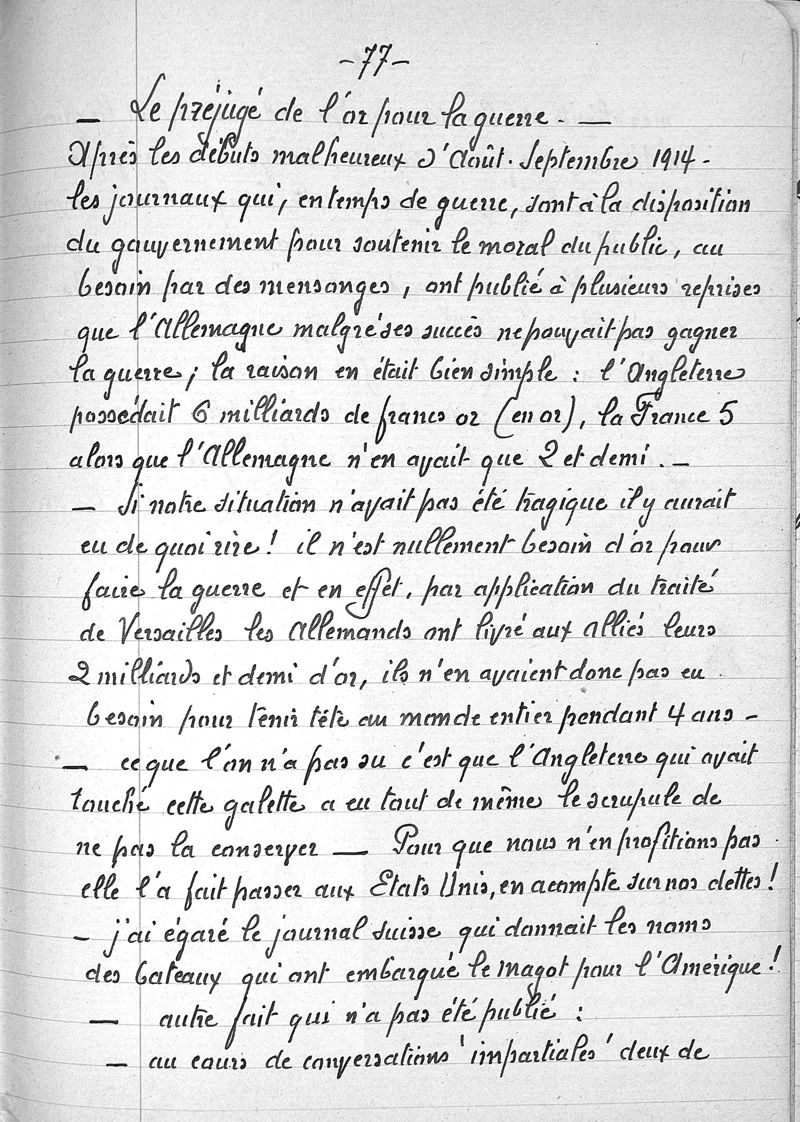 -77-
— Le préjugé de l'or pour la guerre. —
Après les débuts malheureux d'Août. Septembre 1914 -
les journaux qui, en temps de guerre, sont à la disposition
du gouvernement pour soutenir le moral du public, au
besoin par des mensonges, ont publié à plusieurs reprises
que l'Allemagne malgré ses succès ne pouvait pas gagner
la guerre; la raison en était bien simple : l'Angleterre
possédait 6 milliards de francs or (en or), la France 5
alors que l'Allemagne n'en avait que 2 et demi. —
— Si notre situation n'avait pas été tragique il y aurait
eu de quoi rire ! il n'est nullement besoin d'or pour
faire la guerre et en effet, par application du traité
de Versailles les Allemands ont livré aux alliés leurs
2 milliards et demi d'or, ils n'en avaient donc pas eu
besoin pour tenir tête au monde entier pendant 4 ans -
— ce que l'on n'a pas su c'est que l'Angleterre qui avait
touché cette galette a eu tout de même le scrupule de
ne pas la conserver — Pour que nous n'en profitions pas
elle l'a fait passer aux Etats Unis, en acompte sur nos dettes !
- j'ai égaré le journal suisse qui donnait les noms
des bateaux qui ont embarqué le magot pour l'Amérique !
— autre fait qui n'a pas été publié :
— au cours de conversations 'impartiales' deux de